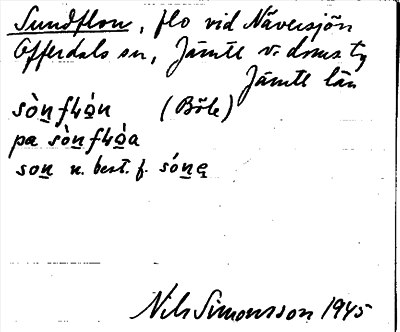 Sundflon, flo vid Näversjön
Offerdals sn, Jämtl. v. doms ty
Jämtl län
sòn flωn (Böle)
pa sòn flωa
son n. best. f. sónę
Nils Simonsson 1945